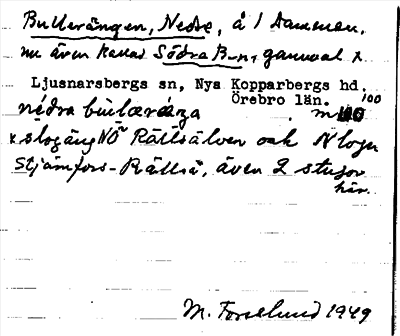 Bullerängen, Nedre, å 1 Dammen,
nu även kallad Södra B-n, gammal x
Ljusnarsbergs sn, Nya Kopparbergs hd.
Örebro län. 100
nédra bùlæränga
x slogäng NÖ Rällsälven och N logn
Stjärnfors-Rällså, även 2 stugor
här.
M. Forselund 1949